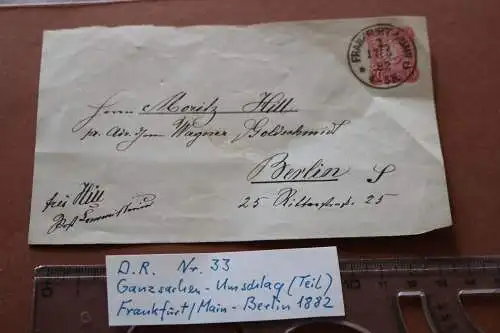 FRANKFURT (MAIN)
1
82
Herrn Moritz Hill
pr. Adr. Herrn Wagner Goldschmidt
Berlin S
25 Ritterstraße 25
frei Hill
D.R. Nr. 33
Ganzsachen-Umschlag (Teil)
Frankfurt/Main - Berlin 1882